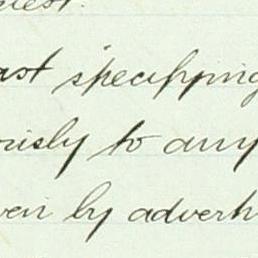 uest.
ast specifying
ously to any
ven by adverti